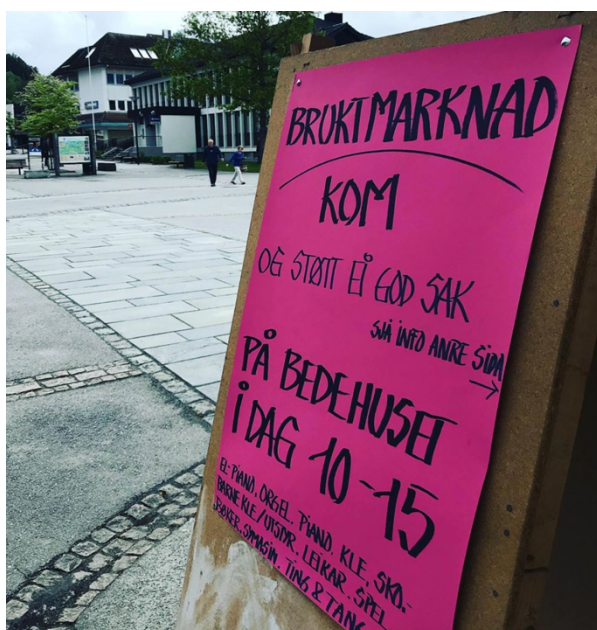 BRUKTMARKNAD
KOM
OG STØTT EI GOD SAK
SJÅ INFO ANRE SIDA
→
PÅ BEDEHUSET
I DAG 10-15
EL-PIANO, ORGEL, PIANO, KLE, SKO.-
BARNEKLE/UTSTYR, LEIKAR, SPEL
BØKER, SYMASIN, TING & TANG